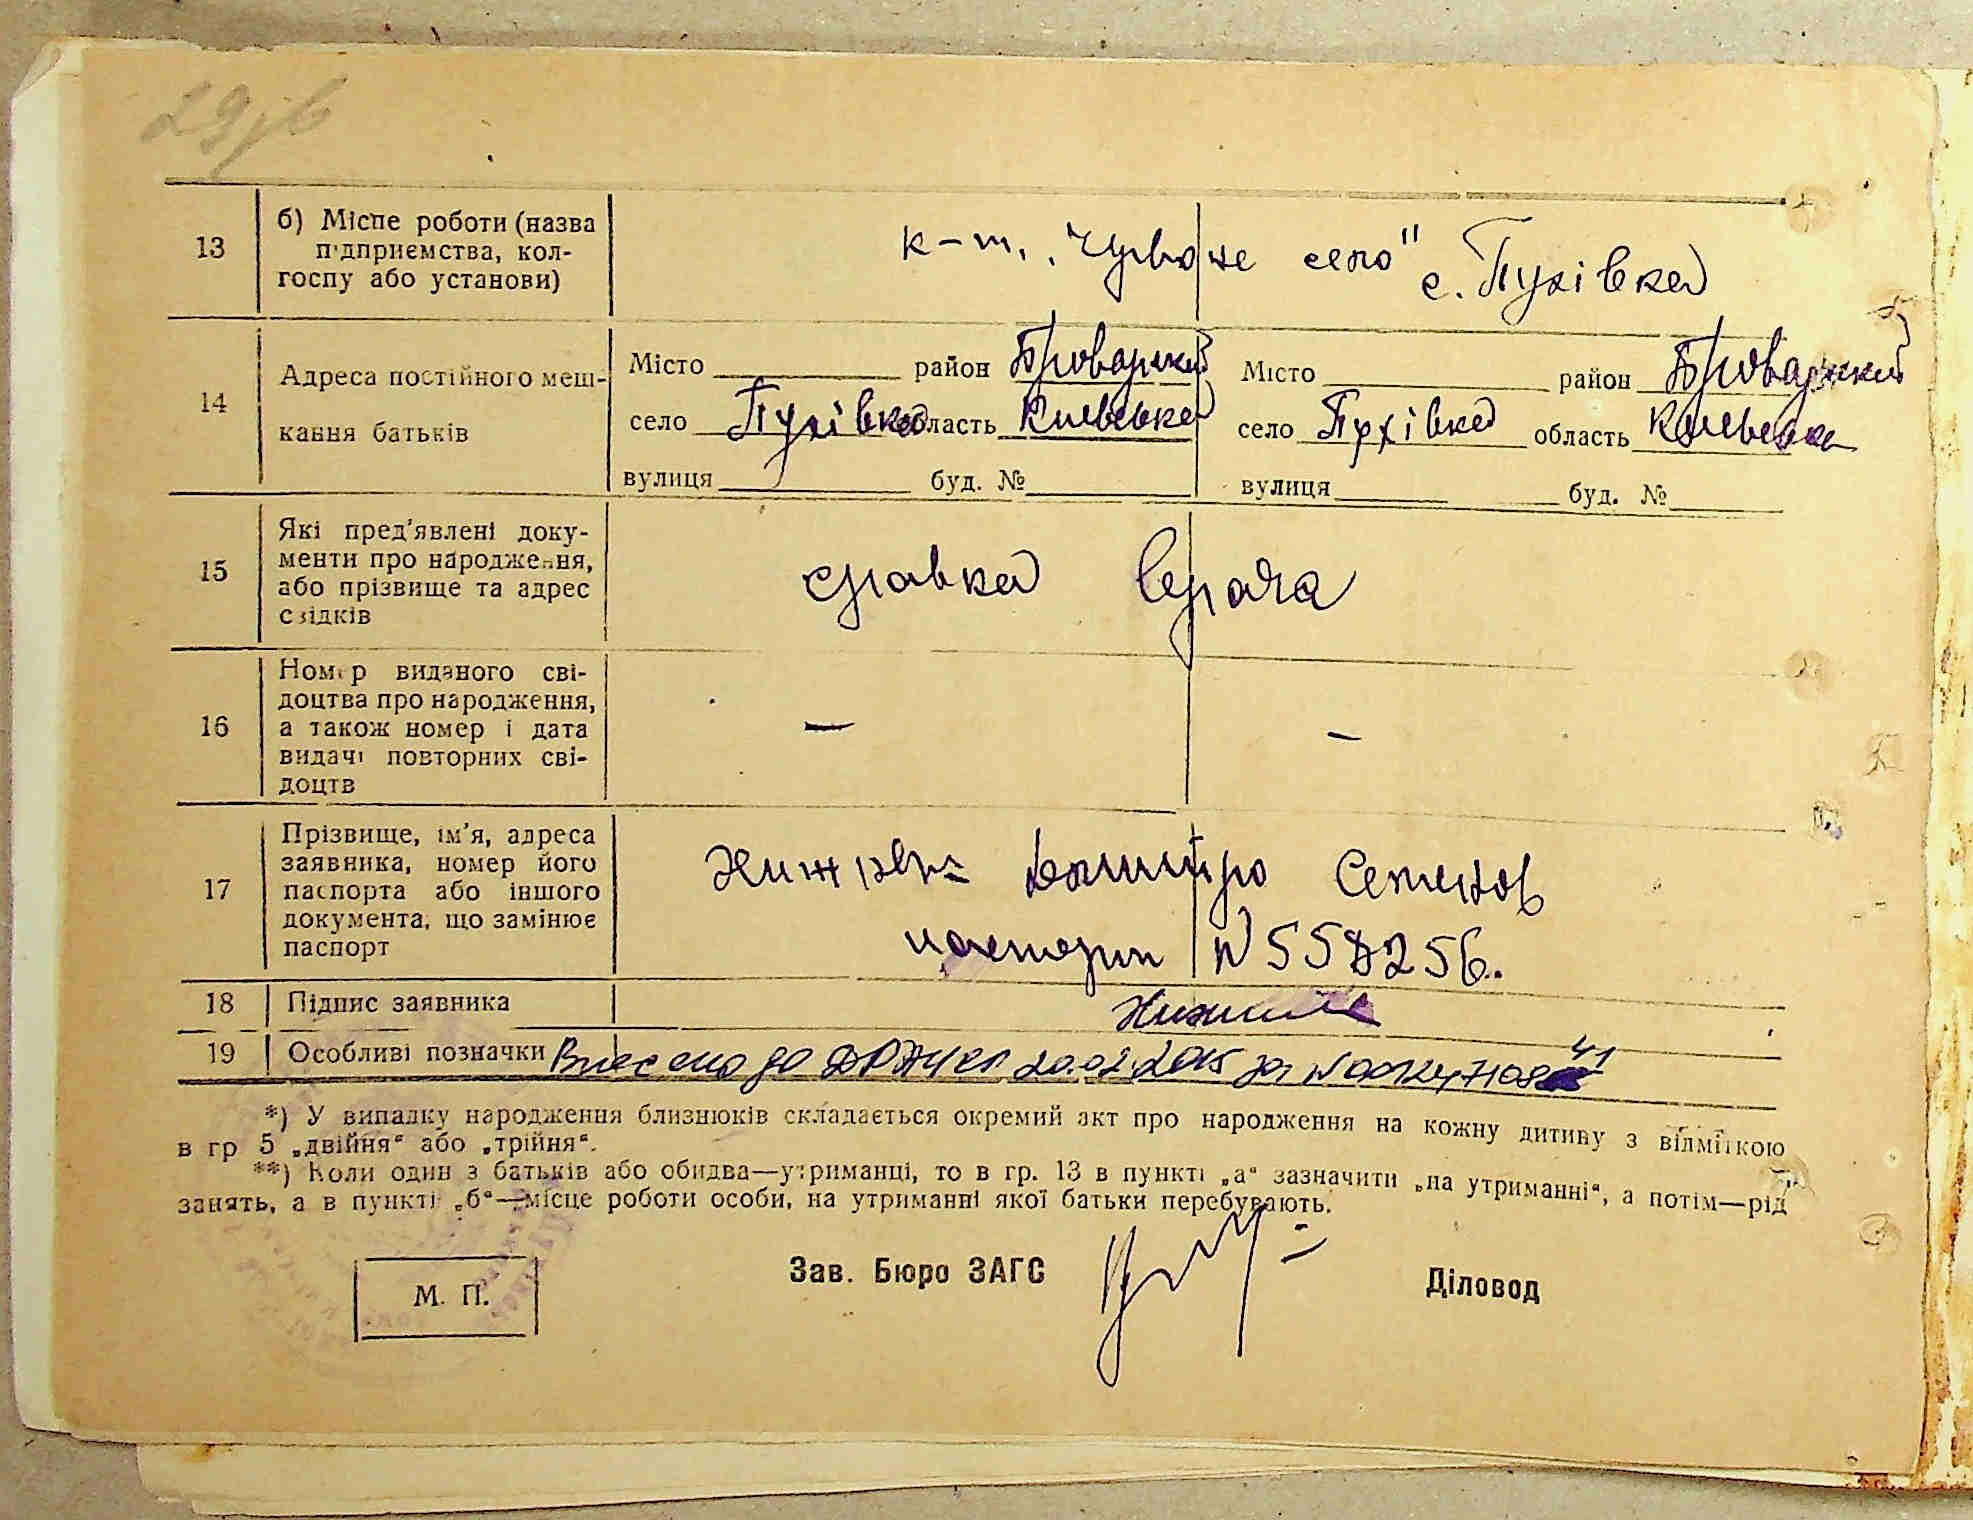 29зв
13
б) Місце роботи (назва
підприємства, кол-
госпу або установи)
к-т. „Червоне село" с. Пухівка
14
Адреса постійного меш-
кання батьків
Місто район Броварський
село Пухівка область Київська
вулиця буд. №
Місто район Броварський
село Пухівка область Київська
вулиця буд. №
15
Які пред'явлені доку-
менти про народження,
або прізвище та адрес
свідків
справка врача
16
Номер виданого сві-
доцтва про народження,
а також номер і дата
видачі повторних сві-
доцтв
— —
17
Прізвище, ім'я, адреса
заявника, номер його
паспорта або іншого
документа, що замінює
паспорт
Дмитро Семенов
паспорт N 558256.
18
Підпис заявника
19
Особливі позначки Внесено до ДРАЦСГ 20.02.2015 за N
*) У випадку народження близнюків складається окремий акт про народження на кожну дитину з відміткою
в гр 5 „двійня" або „трійня".
**) Коли один з батьків або обидва—утриманці, то в гр. 13 в пункті „а" зазначити „на утриманні", а потім—рід
занять, а в пункті „б"—місце роботи особи, на утриманні якої батьки перебувають.
М. П.
Зав. Бюро ЗАГС
Діловод